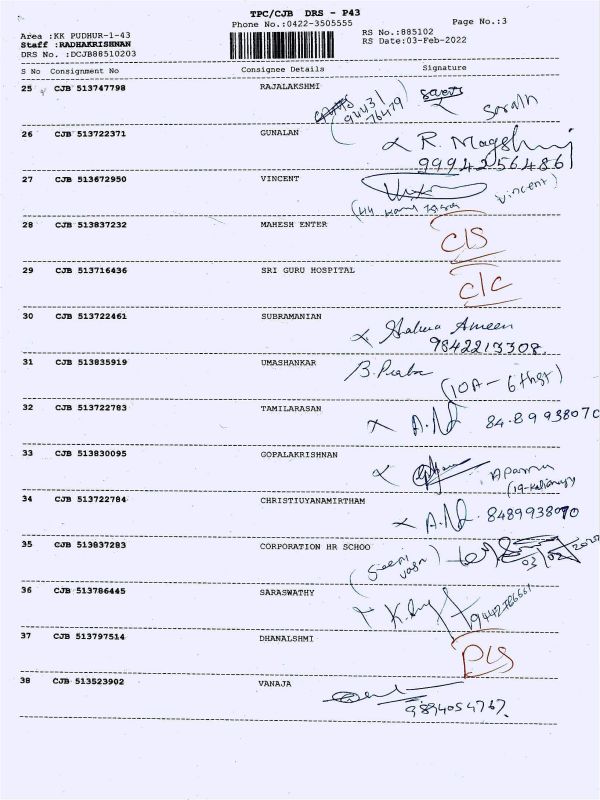 TPC/CJB DRS - P43
Phone No.:0422-3505555
Page No.:3
Area :KK PUDHUR-1-43
RS No.:885102
Staff :RADHAKRISHNAN
RS Date:03-Feb-2022
DRS No. :DCJB88510203
S No Consignment No Consignee Details Signature
25 CJB 513747798 RAJALAKSHMI
94431
76479
26 CJB 513722371 GUNALAN
9994256486
27 CJB 513672950 VINCENT
Vincent)
28 CJB 513837232 MAHESH ENTER
C/S
29 CJB 513716436 SRI GURU HOSPITAL
C/C
30 CJB 513722461 SUBRAMANIAN
Ameen
9842213308
31 CJB 513835919 UMASHANKAR
B.Praba
32 CJB 513722783 TAMILARASAN
8489938070
33 CJB 513830095 GOPALAKRISHNAN
34 CJB 513722784 CHRISTIUYANAMIRTHAM
8489938070
35 CJB 513837283 CORPORATION HR SCHOO
36 CJB 513786445 SARASWATHY
37 CJB 513797514 DHANALSHMI
38 CJB 513523902 VANAJA
9894054767